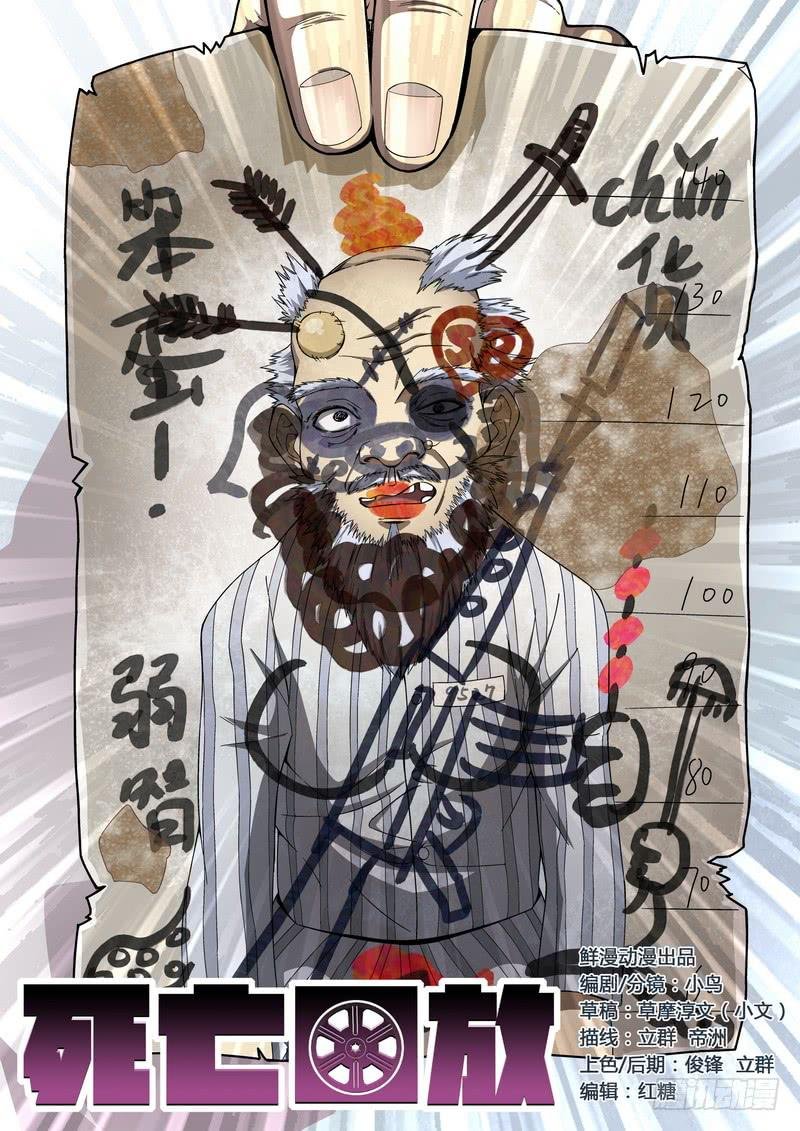 笨蛋!
chǔn
货
140
130
120
110
100
90
80
70
9527
弱智
死亡回放
鲜漫动漫出品
编剧/分镜：小鸟
草稿：草摩淳文（小文）
描线：立群 帝洲
上色/后期：俊锋 立群
编辑：红糖
腾讯动漫